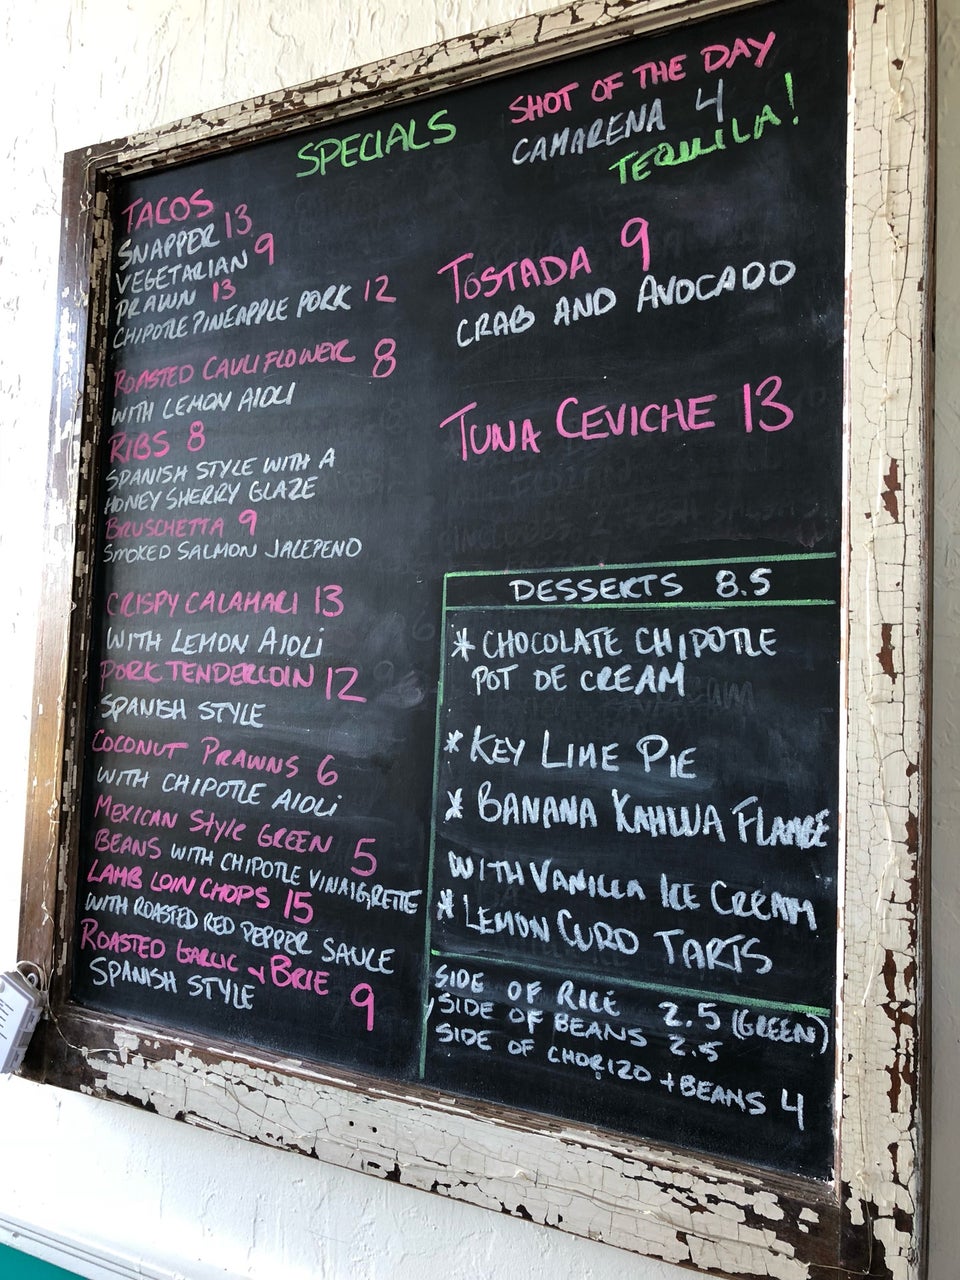 SPECIALS
SHOT OF THE DAY
CAMARENA 4
TEQUILA!
TACOS
SNAPPER 13
VEGETARIAN 9
PRAWN 13
CHIPOTLE PINEAPPLE PORK 12
ROASTED CAULIFLOWER 8
WITH LEMON AIOLI
RIBS 8
SPANISH STYLE WITH A
HONEY SHERRY GLAZE
BRUSCHETTA 9
SMOKED SALMON JALEPENO
CRISPY CALAMARI 13
WITH LEMON AIOLI
PORK TENDERLOIN 12
SPANISH STYLE
COCONUT PRAWNS 6
WITH CHIPOTLE AIOLI
MEXICAN STYLE GREEN 5
BEANS WITH CHIPOTLE VINAIGRETTE
LAMB LOIN CHOPS 15
WITH ROASTED RED PEPPER SAUCE
ROASTED GARLIC + BRIE 9
SPANISH STYLE
TOSTADA 9
CRAB AND AVOCADO
TUNA CEVICHE 13
DESSERTS 8.5
* CHOCOLATE CHIPOTLE
POT DE CREAM
* KEY LIME PIE
* BANANA KAHLUA FLAMBE
WITH VANILLA ICE CREAM
* LEMON CURD TARTS
SIDE OF RICE 2.5 (GREEN)
SIDE OF BEANS 2.5
SIDE OF CHORIZO + BEANS 4